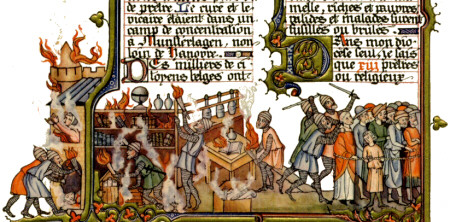 de prêtre. Le curé et le
vicaire étaient dans un
camp de concentration
à Munsterlagen,
loin de Hanovre.
Des milliers de ci
toyens belges ont
melle, riches et pauvres,
valides et malades furent
fusillés ou brulés.
Dans mon dio
cèse seul, je sais
que XIII prêtres
ou religieux